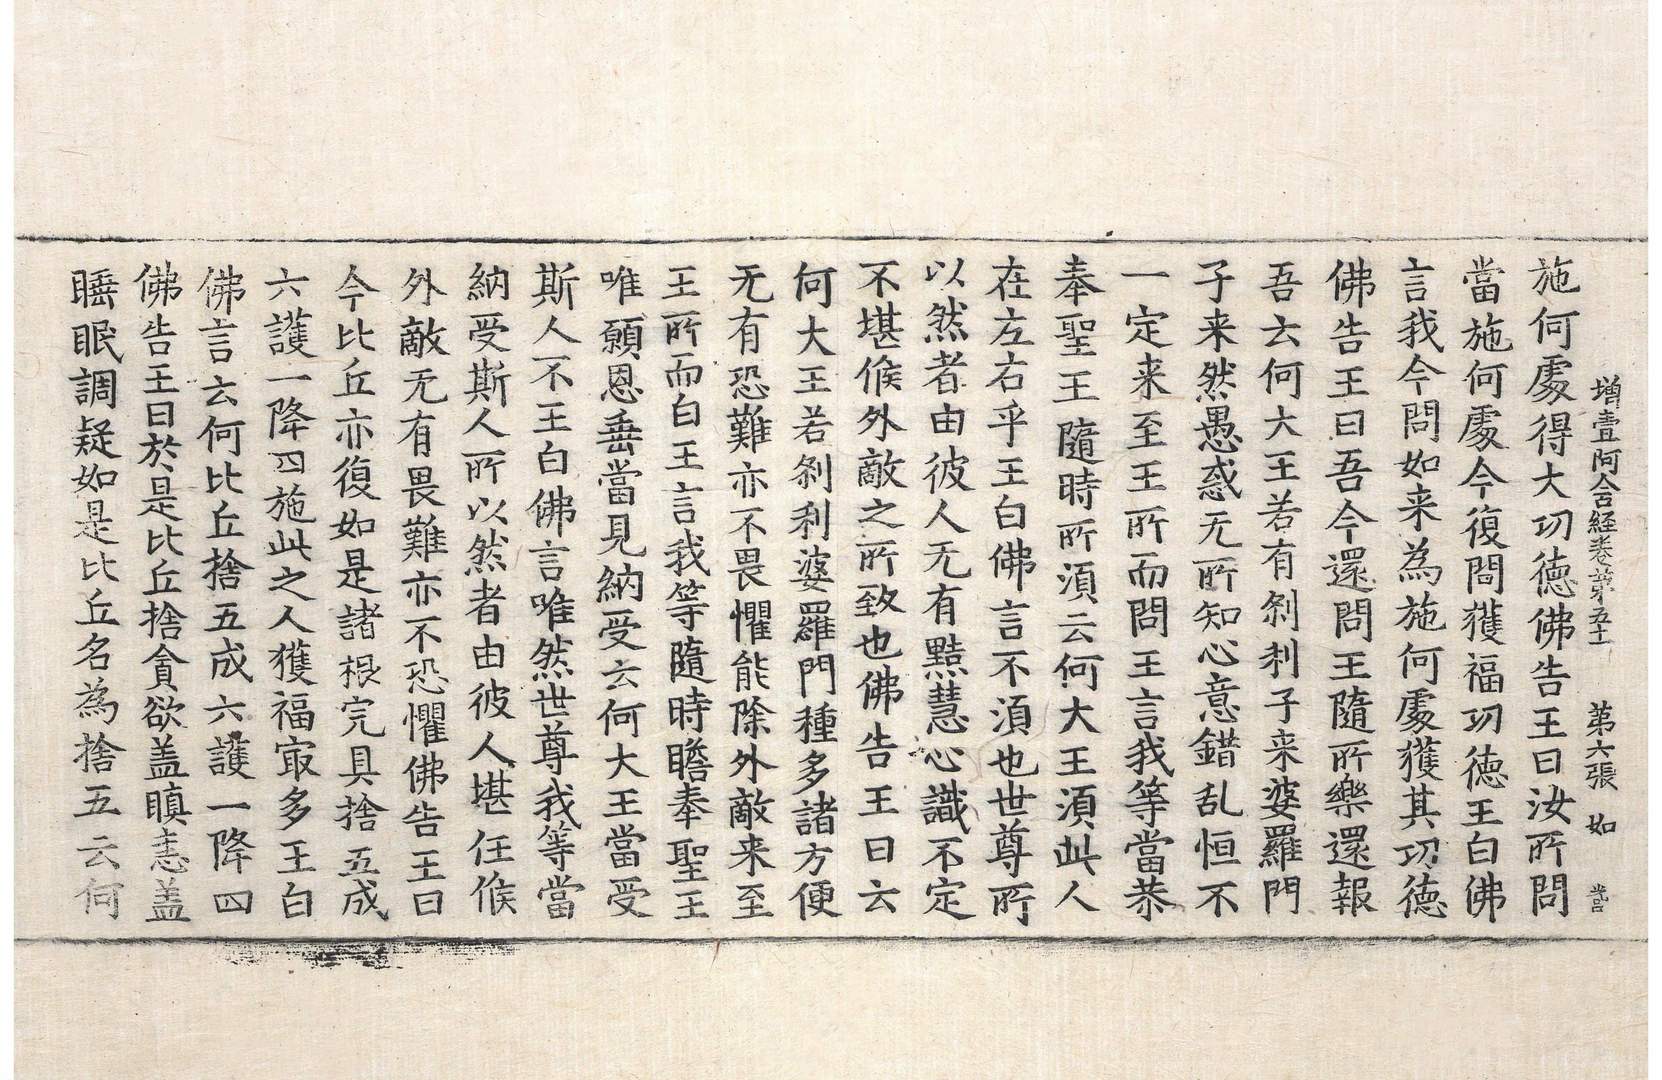 增壹阿含経卷第五十 第六張 如
施何處得大功德佛告王曰汝所問
當施何處今復問獲福功德王白佛
言我今問如来為施何處獲其功德
佛告王曰吾今還問王隨所樂還報
吾云何大王若有剎利子来婆羅門
子来然愚惑无所知心意錯乱恒不
一定来至王所而問王言我等當恭
奉聖王隨時所湏云何大王湏此人
在左右乎王白佛言不湏也世尊所
以然者由彼人无有黠慧心識不定
不堪候外敵之所致也佛告王曰云
何大王若剎利婆羅門種多諸方便
无有恐難亦不畏懼能除外敵来至
王所而白王言我等隨時瞻奉聖王
唯願恩垂當見納受云何大王當受
斯人不王白佛言唯然世尊我等當
納受斯人所以然者由彼人堪任候
外敵无有畏難亦不恐懼佛告王曰
今比丘亦復如是諸根完具捨五成
六護一降四施此之人獲福㝡多王白
佛言云何比丘捨五成六護一降四
佛告王曰於是比丘捨貪欲盖瞋恚盖
睡眠調疑如是比丘名為捨五云何